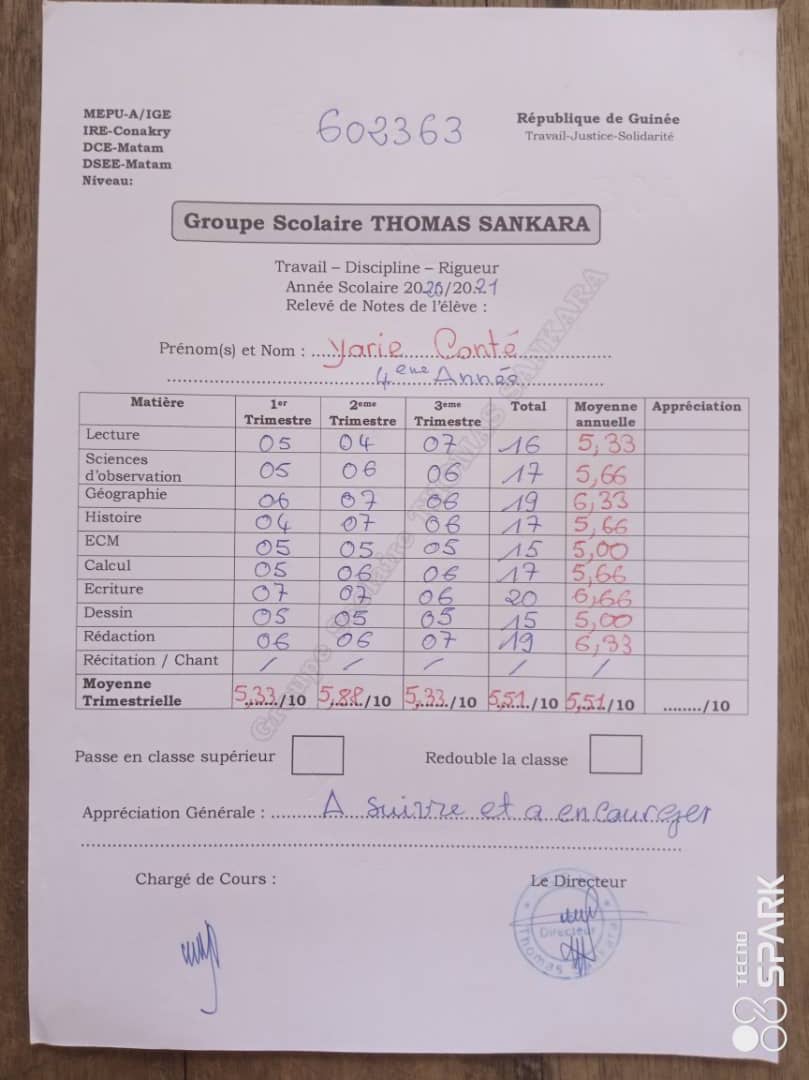 MEPU-A/IGE
IRE-Conakry
DCE-Matam
DSEE-Matam
Niveau:
602363
République de Guinée
Travail-Justice-Solidarité
Groupe Scolaire THOMAS SANKARA
Travail – Discipline – Rigueur
Année Scolaire 2020/2021
Relevé de Notes de l'élève :
Prénom(s) et Nom : Yarie Conté
4eme Année
Matière 1er Trimestre 2eme Trimestre 3eme Trimestre Total Moyenne annuelle Appréciation
Lecture 05 04 07 16 5,33
Sciences d'observation 05 06 06 17 5,66
Géographie 06 07 06 19 6,33
Histoire 04 07 06 17 5,66
ECM 05 05 05 15 5,00
Calcul 05 06 06 17 5,66
Ecriture 07 07 06 20 6,66
Dessin 05 05 05 15 5,00
Rédaction 06 06 07 19 6,33
Récitation / Chant / / / / /
Moyenne Trimestrielle 5,33/10 5,88/10 5,33/10 5,51/10 5,51/10 ......../10
Passe en classe supérieur
Redouble la classe
Appréciation Générale : A suivre et a encaurger
Chargé de Cours :
Le Directeur
Directeur
Thomas Sankara
Groupe Scolaire THOMAS SANKARA
TECNO
SPARK